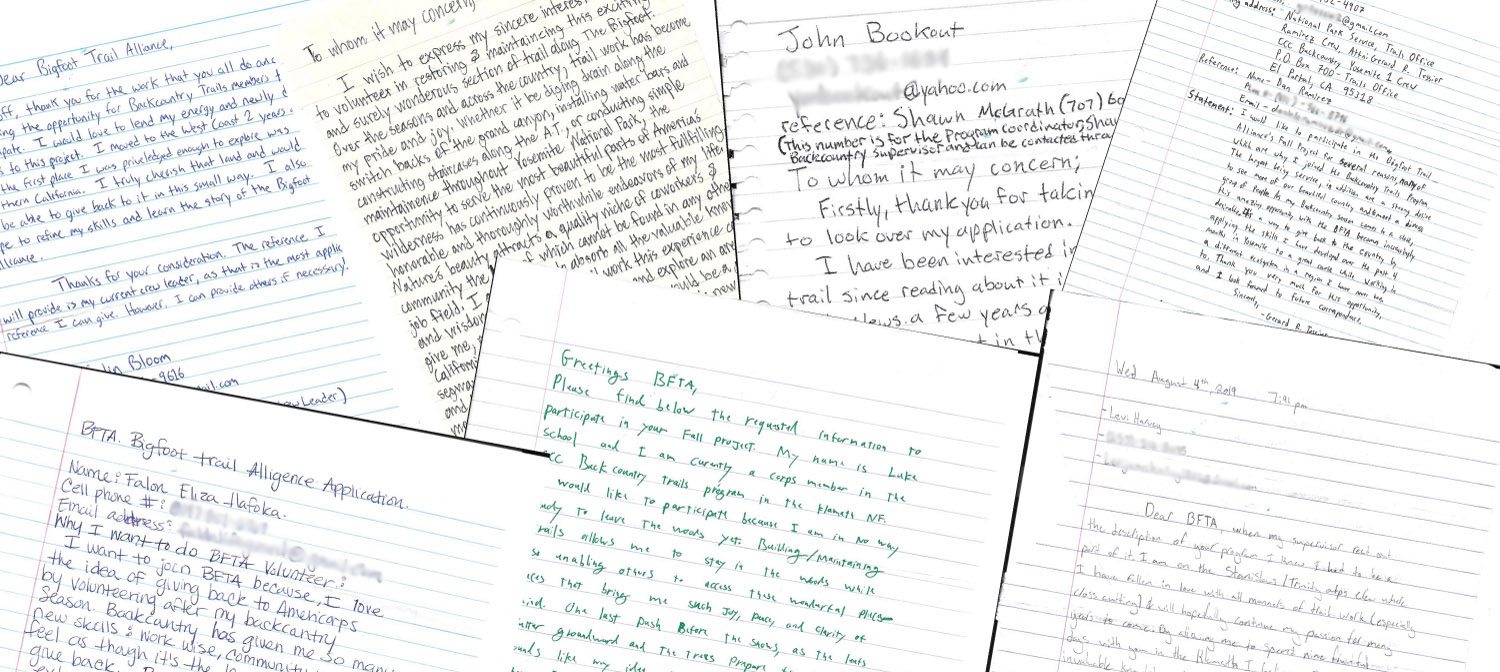 Dear Bigfoot Trail Alliance,
off, thank you for the work that you all do and
ing the opportunity for Backcountry Trails members t
ipate. I would love to lend my energy and newly d
s to this project. I moved to the West Coast 2 years
the first place I was priviledged enough to explore was
thern California. I truly cherish that land and would
be able to give back to it in this small way. I also
pe to refine my skills and learn the story of the Bigfoot
lliance.
Thanks for your consideration. The reference I
will provide is my current crew leader, as that is the most applic
reference I can give. However, I can provide others if necessary.
lin Bloom
9616
ail.com
ew Leader)
To whom it may concern,
I wish to express my sincere interest
to volunteer in restoring & maintaincing this exciting
and surely wonderous section of trail along The Bigfoot.
Over the seasons and across the country, trail work has become
my pride and joy. Whether it be diging drain along the
switch backs of the grand canyon, installing water bars and
constructing staircases along the A.T., or conducting simple
maintainence throughout Yosemite National Park, the
opportunity to serve the most beautiful parts of Americas
wilderness has continuously proven to be the most fullfilling
honorable and thoroughly worthwhile endeavors of my life.
Natures beauty attracts a quality niche of coworkers &
community the of which cannot be found in any othe
job field. I absorb all the valuable know
and wisdom work this experience c
give me, and explore an are
Californi would be a
segmen new
and
me
John Bookout
@yahoo.com
reference: Shawn McGrath (707)
(This number is for the Program coordinator, Shaw
Backcountry supervisor and can be contacted throu
To whom it may concern;
Firstly, thankyou for takin
to look over my application.
I have been interested i
trail since reading about it i
News a few years a
t in th
4907
@gmail.com
ng address: National Park Service, Trails Office
Ramirez Crew, Attn: Gerard R. Tessier
CCC Backcountry Yosemite 1 Crew
P.O. Box 700 - Trails Office
El Portal, CA 95318
Reference: Name - Dan Ramirez
Email -
Statement: I would like to participate in the Bigfoot Trail
Alliance's Fall Project for several reasons, many of
which are why I joined the Backcountry Trails Program.
The largest being service, in addition are a strong desire
to see more of our beautiful country, and
group of people. As my Backcountry season comes to a close,
an amazing opportunity with the BFTA became increasingly
desirable, it's a way to give back to the country, by
applying the skills I have developed over the past 4
months in Yosemite to a great cause while working in
a different ecosystem in a region I have never been
to. Thank you very much for this opportunity,
and I look forward to future correspondence.
Sincerely,
- Gerard R. Tessier
BFTA. Bigfoot trail Alligence Application.
Name: Falon Eliza Hafoka.
Cell phone #:
Email address:
Why I want to do BFTA Volunteer:
I want to join BFTA because, I love
the idea of giving back to Americorps
by volunteering after my backcantry
season. Backcantry has given me so many
new skills: work wise, communit
feel as though it's the
give back.
Greetings BFTA,
Please find below the requested information to
participate in your Fall project. My name is Luke
school and I am curently a corps member in the
CC Backcountry Trails program in the Klamath NF.
would like to participate because I am in no way
ady to leave the woods yet. Building/Maintaining
rails allows me to stay in the woods while
so enabling others to access these wonderful places
ces that bring me such joy, peace, and clarity of
ind. One last push Before the snows, as the leafs
utter groundward and the Trees Prepare
unds like my idea
Wed August 4th, 2019 7:42 pm
- Levi Harvey
-
-
Dear BFTA, when my supervisor read out
the description of your program I knew I had to be a
part of it. I am on the Stanislaus/Trinity alps crew where
I have fallen in love with all manners of trail work (especially
class cutting) & will hopefully continue my passion for many
years to come. By allowing me to spend nine fruitful
days with you in the Klamath I
invaluable